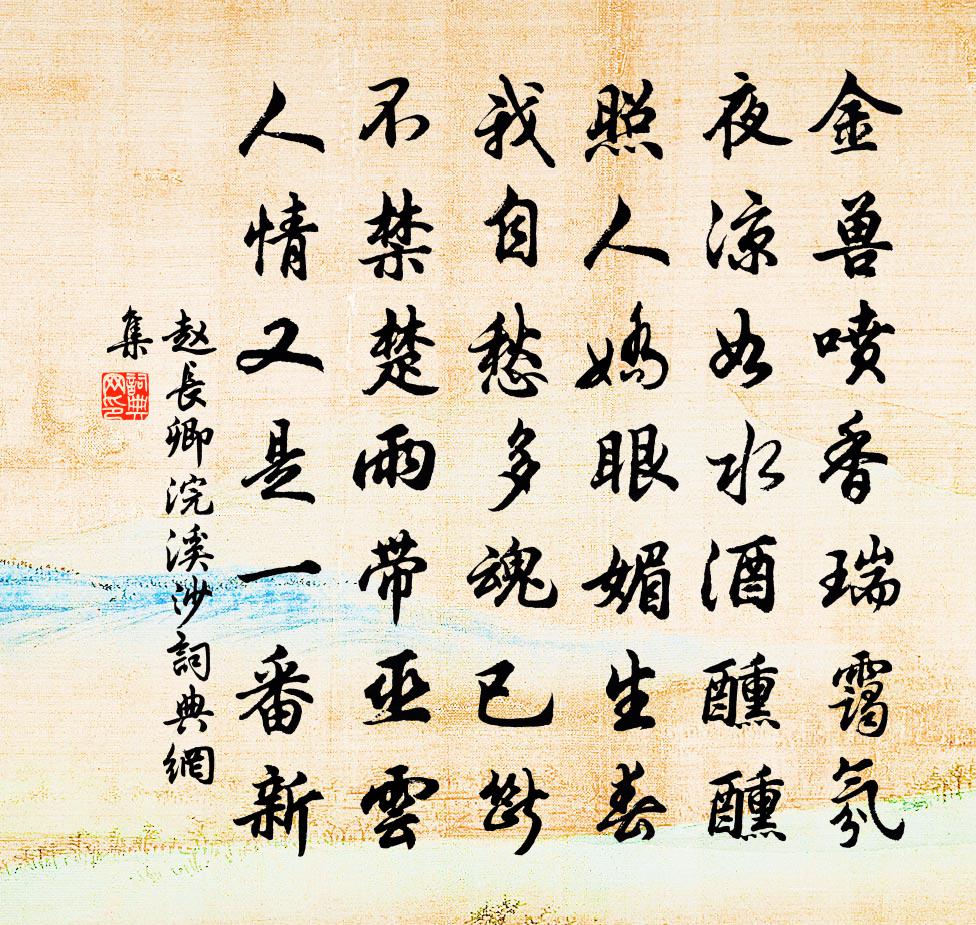 金兽喷香瑞霭氛
夜凉如水酒醺醺
照人娇眼媚生春
我自愁多魂已断
不禁楚雨带巫雲
人情又是一番新
赵長卿浣溪沙詞典網
集
詞典网印